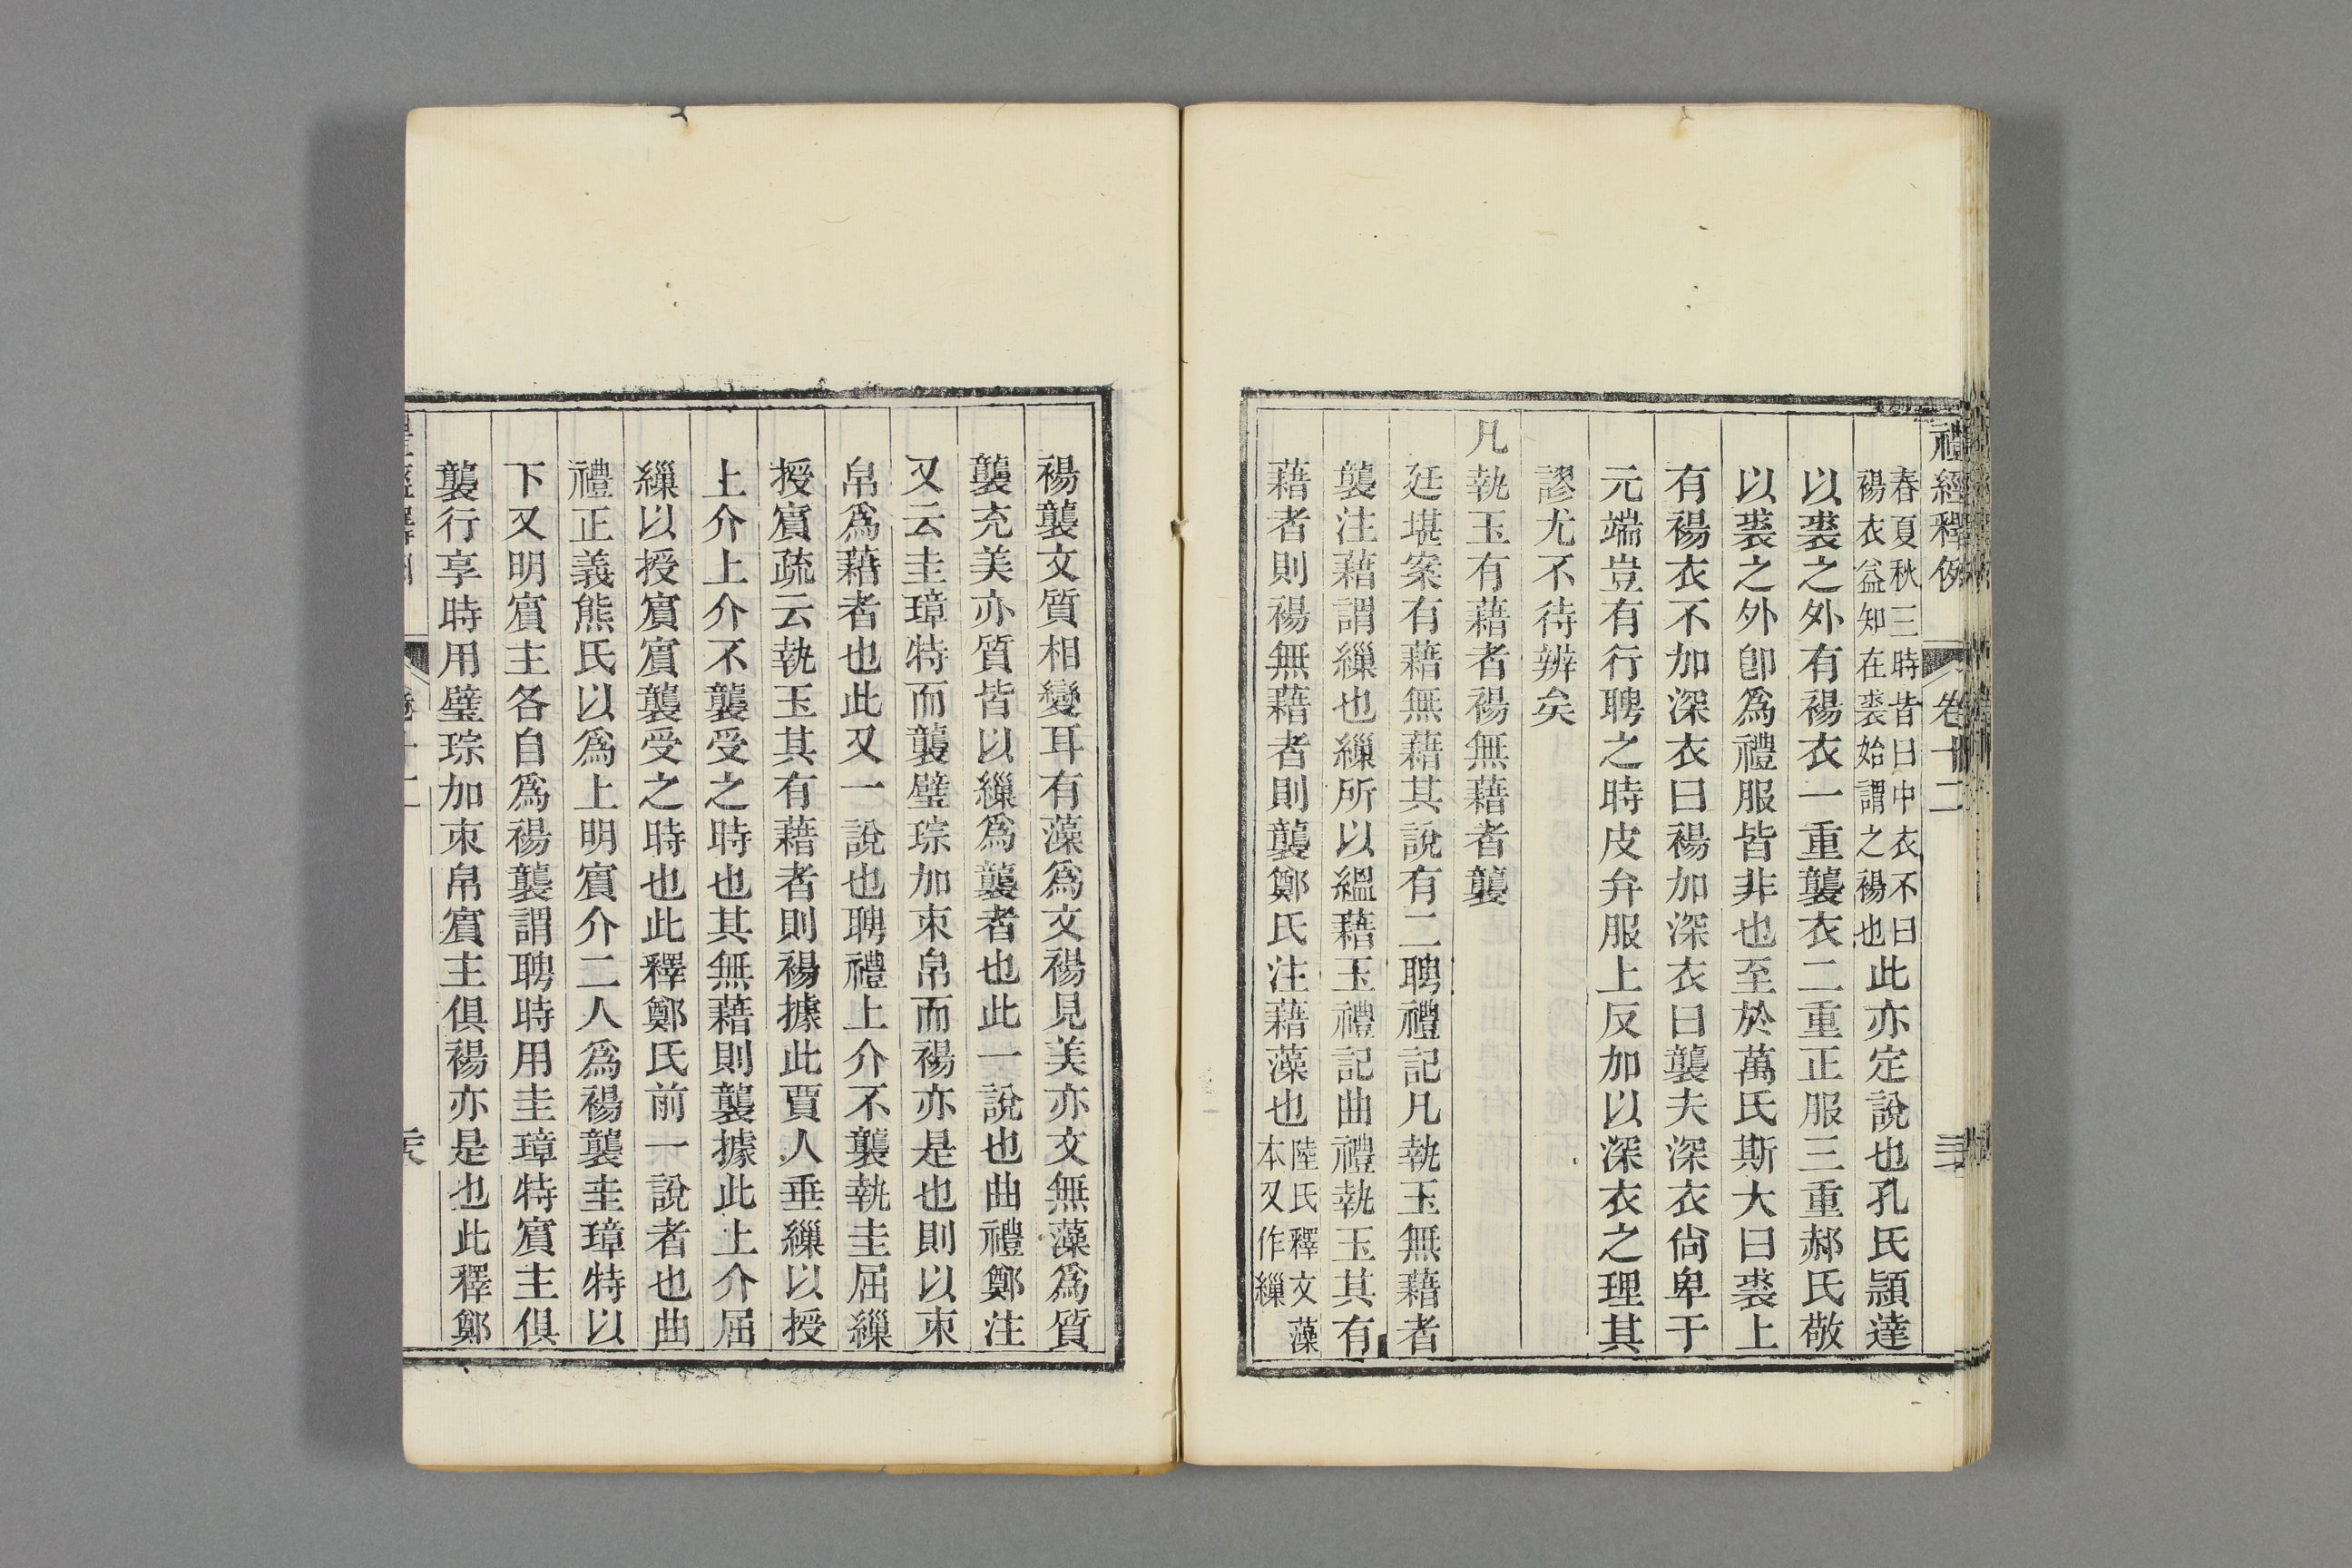 禮經釋例 卷十二
春夏秋三時皆曰中衣不曰
裼衣益知在裘始謂之裼也
此亦定說也孔氏頴達
以裘之外有裼衣一重襲衣二重正服三重郝氏敬
以裘之外卽爲禮服皆非也至於萬氏斯大曰裘上
有裼衣不加深衣曰裼加深衣曰襲夫深衣尙卑于
元端豈有行聘之時皮弁服上反加以深衣之理其
謬尤不待辨矣
凡執玉有藉者裼無藉者襲
廷堪案有藉無藉其說有二聘禮記凡執玉無藉者
襲注藉謂繅也繅所以縕藉玉禮記曲禮執玉其有
藉者則裼無藉者則襲鄭氏注藉藻也
陸氏釋文藻
本又作繅
裼襲文質相變耳有藻爲文裼見美亦文無藻爲質
襲充美亦質皆以繅爲襲者也此一說也曲禮鄭注
又云圭璋特而襲璧琮加束帛而裼亦是也則以束
帛爲藉者也此又一說也聘禮上介不襲執圭屈繅
授賔疏云執玉其有藉者則裼據此賈人垂繅以授
上介上介不襲受之時也其無藉則襲據此上介屈
繅以授賔賔襲受之時也此釋鄭氏前一說者也曲
禮正義熊氏以爲上明賔介二人爲裼襲圭璋特以
下又明賔主各自爲裼襲謂聘時用圭璋特賔主俱
襲行享時用璧琮加束帛賔主俱裼亦是也此釋鄭